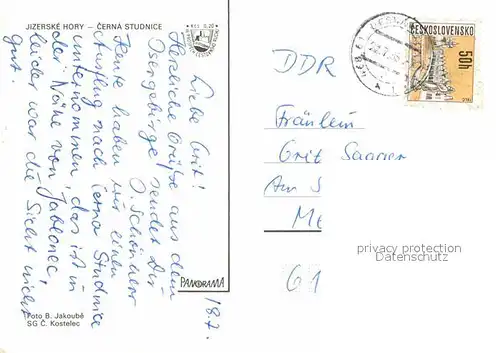 JIZERSKÉ HORY – ČERNÁ STUDNICE
Kčs 0,20
Liebe Grit!
Herzliche Grüße aus dem
Isergebirge sendet Dir
D. Schönherr
Heute haben wir einen
Ausflug nach Černa Studnice
unternommen, das ist in
der Nähe von Jablonec,
leider war die Sicht nicht
gut.
18.7.
PANORAMA
Foto B. Jakoubě
SG Č. Kostelec
ČESKOSLOVENSKO
50h
DDR
Fräulein
Grit Saager
Am S
Me
61
privacy protection
Datenschutz